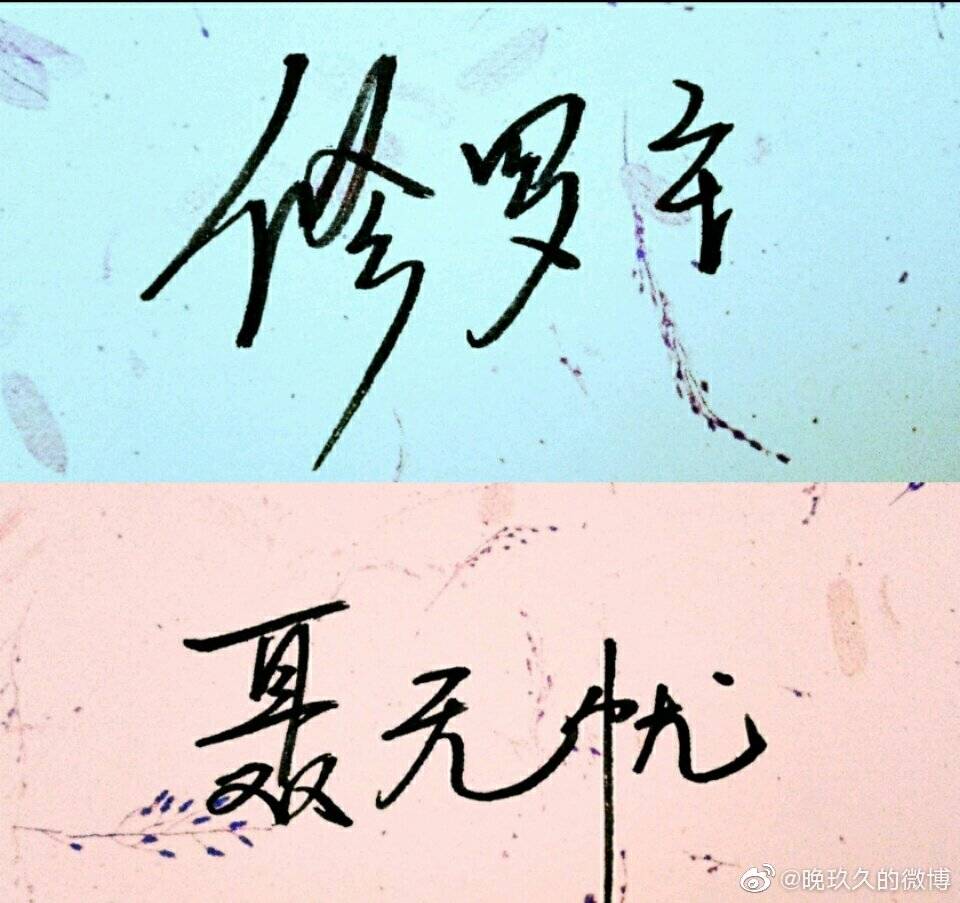 修罗
聂无忧
@晚玖久的微博